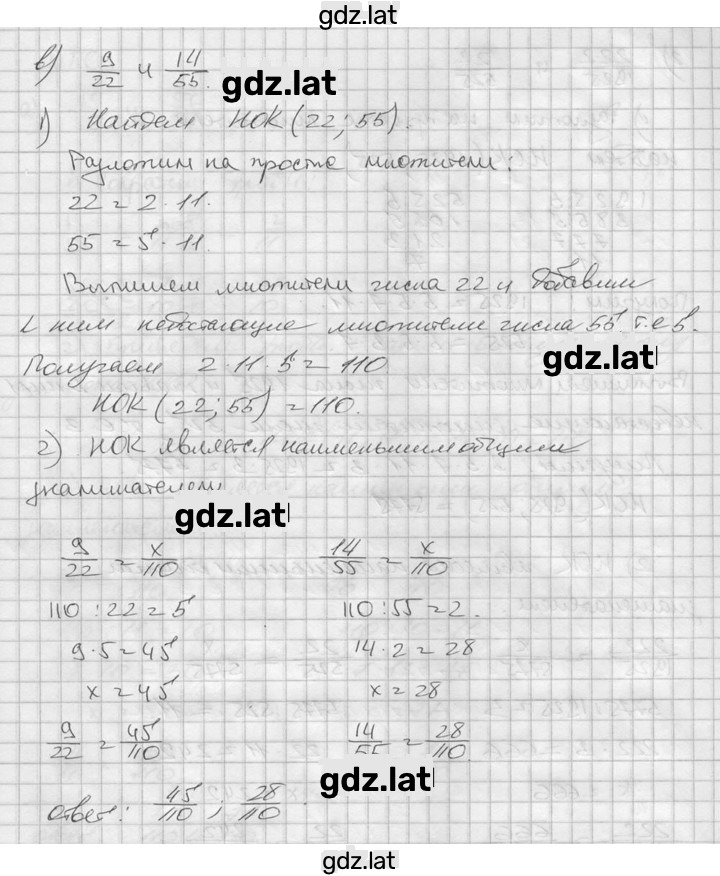 gdz.lat
в) 9/22 и 14/55.
gdz.lat
1) Найдем НОК (22; 55).
Разложим на просты множители:
22 = 2 · 11.
55 = 5 · 11.
Выпишем множители числа 22 и добавим
к ним недостающие множители числа 55. т.е 5.
gdz.lat
Получаем 2 · 11 · 5 = 110
НОК (22; 55) = 110.
2) НОК является наименьшим общим
знаменателем
gdz.lat
9/22 = x/110 14/55 = x/110
110 : 22 = 5 110 : 55 = 2.
9 · 5 = 45 14 · 2 = 28
x = 45 x = 28
9/22 = 45/110 14/55 = 28/110.
gdz.lat
Ответ: 45/110 ; 28/110
gdz.lat